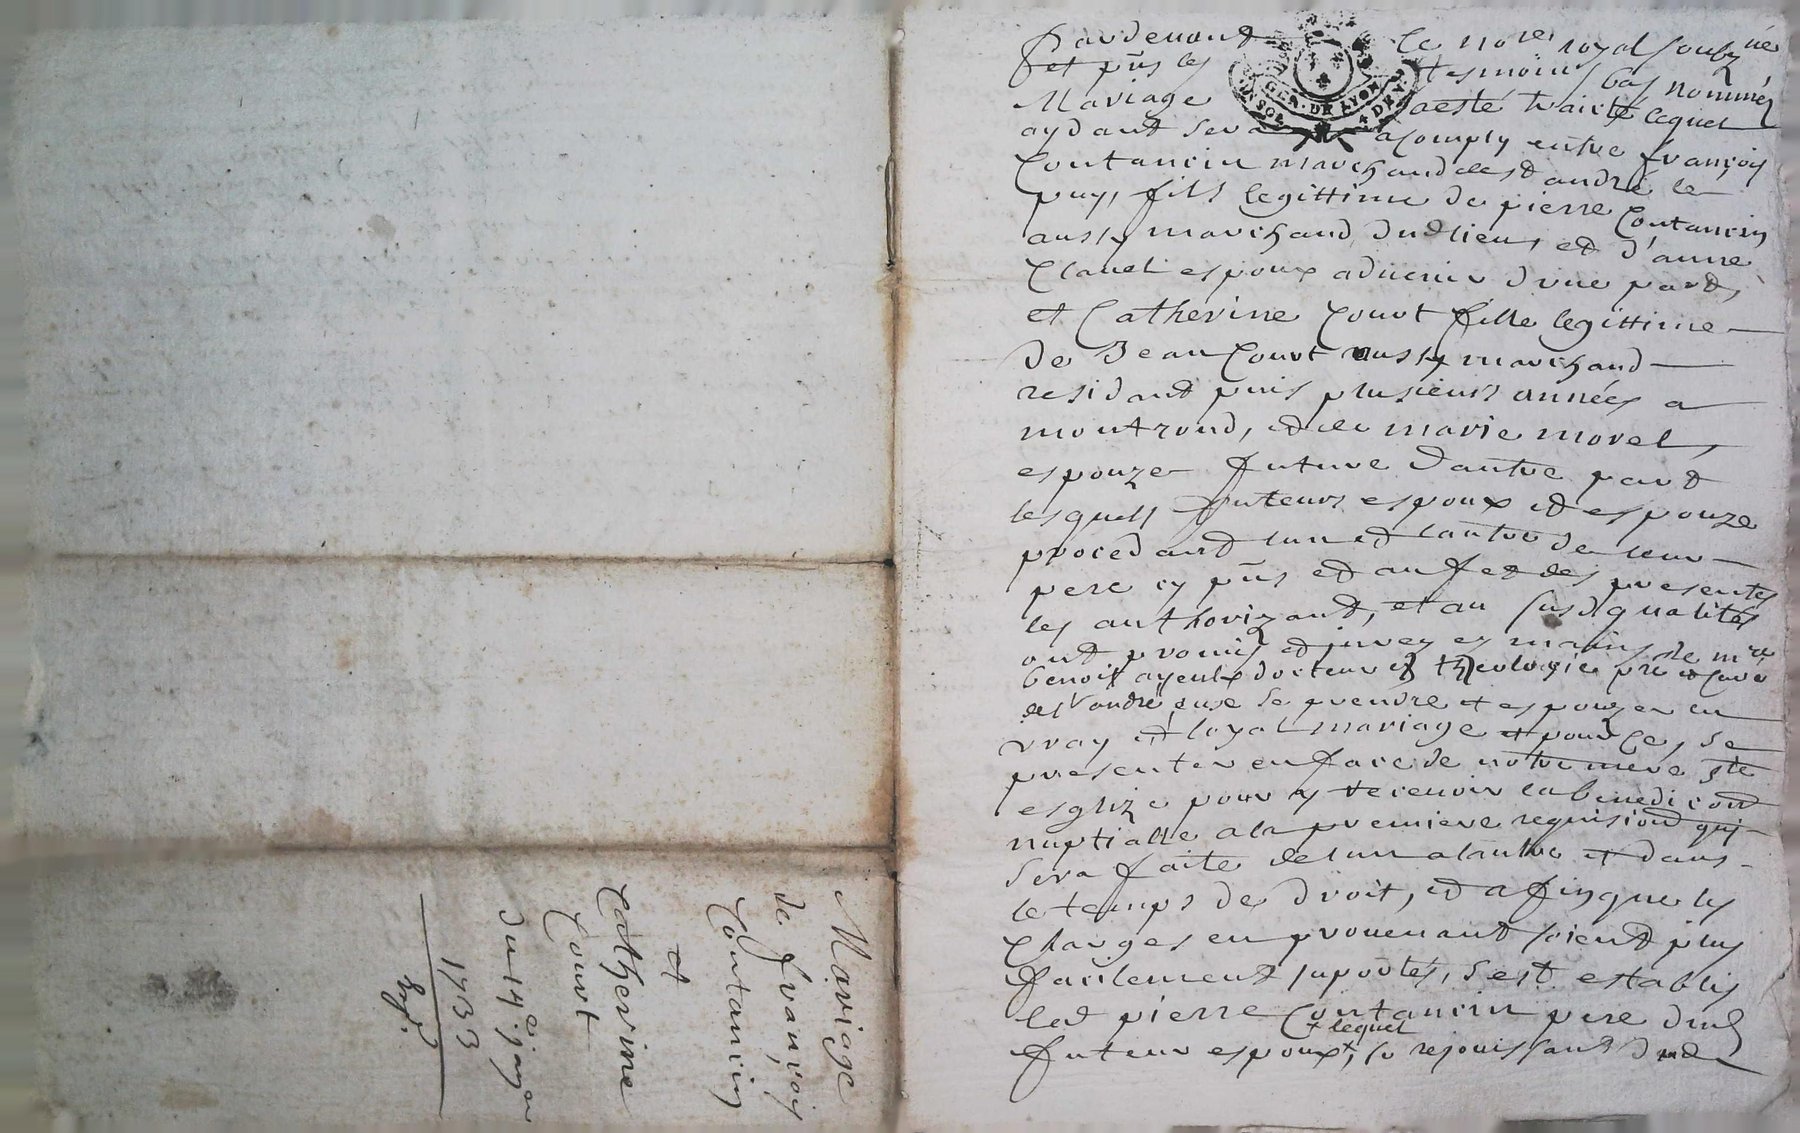 Mariage
de françois
Coutancin
et
Catherine
Court
du 14e janvier
1733
Expd.
Pardevant le nore royal soubzné
et pñs les tesmoins bas nommés
Mariage a esté traicté lequel
aydant sera acomply entre françois
Coutancin marchand de st andré le
puy, fils legittime de pierre Coutancin
aussy marchand dud lieu, et d'anne
Clavel espoux advenir d'une part,
et Catherine Court fille legittime
de Jean Court aussy marchand
residant puis plusieurs années a
montrond, et de marie morel,
espouze future d'autre part
lesquels futeurs espoux et espouze
procedant lun et lautre de leur
pere cy pñs et au fet des presentes
les authorizant, et au susd qualités
ont promis et jurez es mains de mre
benoist ayeulx docteur en theologie pre et curé
de st andré puse se prendre et espouzer en
vray et loyal mariage et pour ce, se
presenter en face de notre mere ste
esglize pour y recevoir la benediçond
nuptialle a la premiere requisiond qui
sera faite de lun a lautre et dans
le temps de droit, et afin que les
charges en provenant soient plus
facilement suportés, s'est establis
led pierre Coutancin pere dud
+ lequel
futeur espoux+, se rejouissant dud
GER. DE LYON